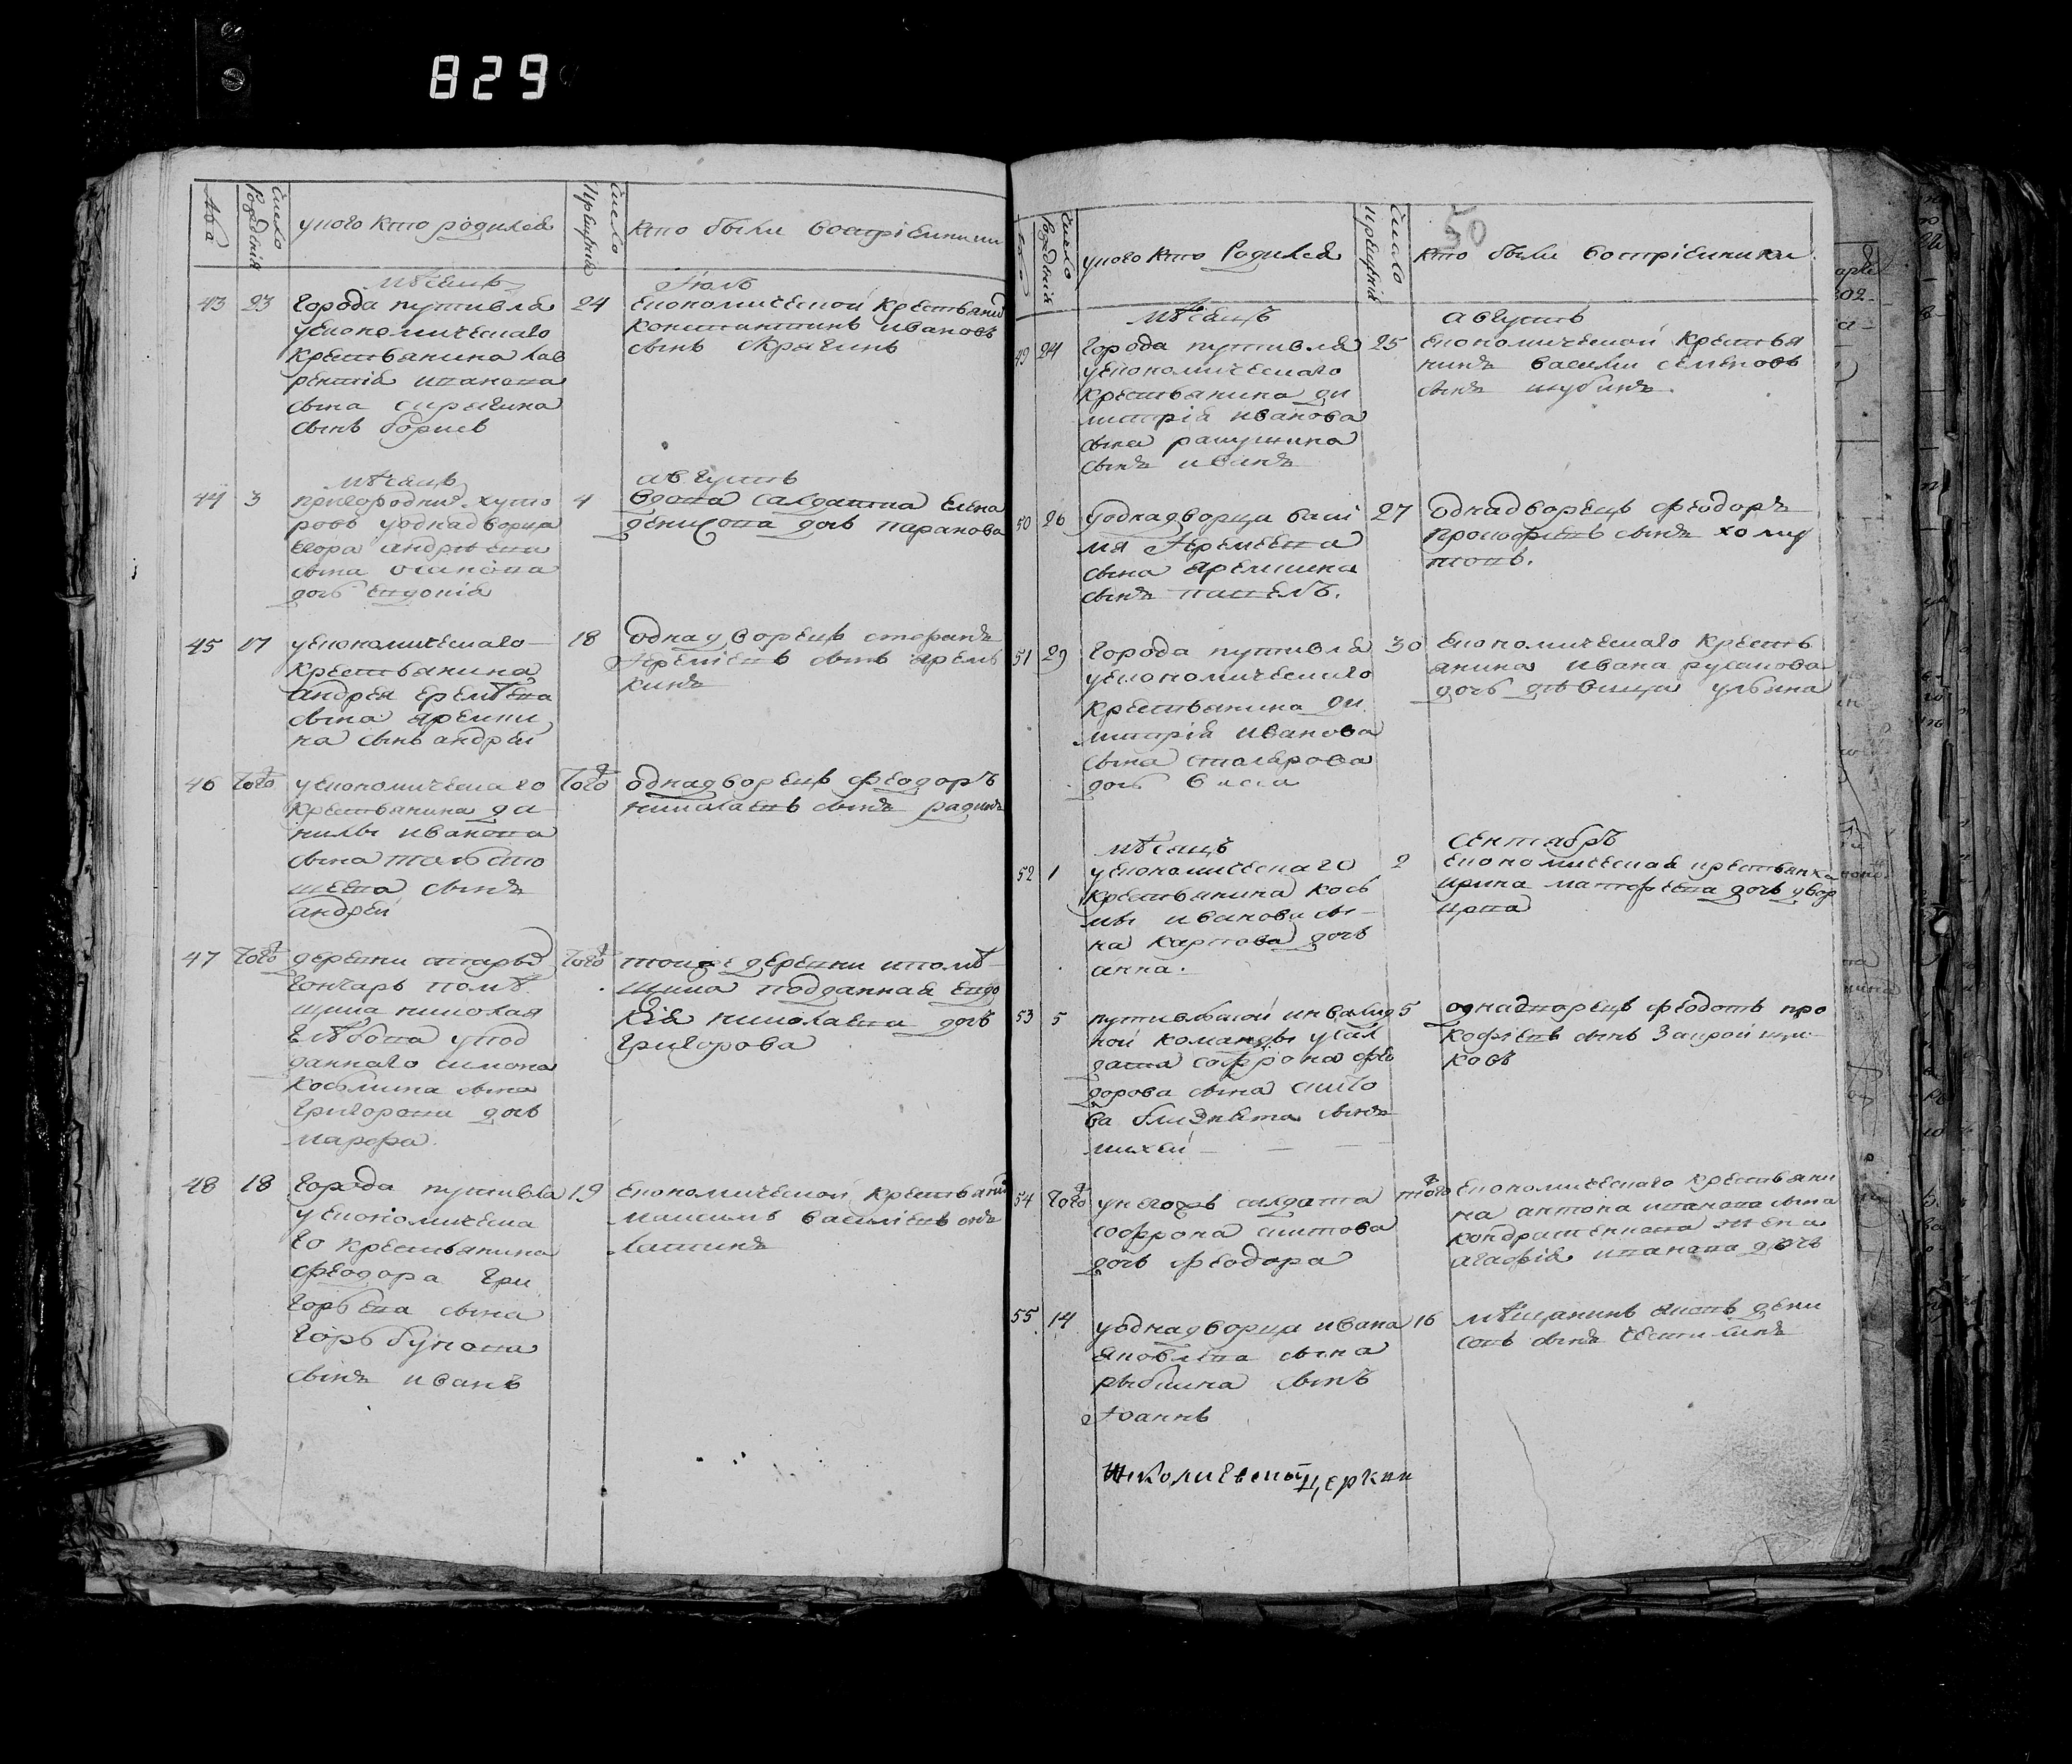 829
Число Рождения
у кого кто родился
Число Крещения
кто были восприемники
мѣсяцъ Июль
43 23 города путивля 24
у економическаго
крестьянина лав
рентия иванова
сына
сынъ борисъ
економической крестьянинъ
константинъ ивановъ
сынъ
мѣсяцъ августъ
44 3 пригородних хуто 4
ровъ у однадворца
егора андреева
сына
дочь евдокия
вдова салдатка елена
денисова дочь
45 17 у економическаго 18
крестьянина
андрея еремѣева
сына яремки
на сынъ андрей
однадворецъ стефанъ
Иеремиевъ сынъ яремъ
кинъ
46 того у економическаго того
крестьянина да
нилы иванова
сына толсто
шеева сынъ
андрей
однадворецъ феодоръ
николаевъ сынъ радинъ
47 того деревни старых того
гончаръ помѣ
щика николая
глѣбова у под
даннаго симона
косьмина сына
григорова дочь
марфа
тоиже деревни и помѣ
щика подданная евдо
кия николаева дочь
григорова
48 18 города путивля 19
у економическа
го крестьянина
феодора гри
горьева сына
горьбунова
сынъ иванъ
економической крестьянинъ
максимъ василиевъ сынъ
лаптинъ
50
Число Рождения
у кого кто Родился
Число Крещения
кто были восприемники
мѣсяцъ августъ
49 24 города путивля 25
у економическаго
крестьянина ди
митрия иванова
сына
сынъ иванъ
економической крестья
нинъ василий семеновъ
сынъ шубинъ.
50 26 у однадворца васи 27
лия Иеремеева
сына яремкина
сынъ павелъ.
однадворецъ феодоръ
прокофиевъ сынъ хому
товъ.
51 29 города путивля 30
у економическаго
крестьянина ди
митрия иванова
сына столярова
дочь васса
економическаго кресть
янина ивана русанова
дочь дѣвица улияна
мѣсяцъ сентябръ
52 1 у економическаго 2
крестьянина кось
мы иванова сы
на карпова дочь
анна.
економическая крестьянка
ирина матфеева дочь
53 5 путивльской инвалид 5
ной команды у сал
дата софрона фео
дорова сына шито
ва близнята сынъ
михей
однадворецъ федотъ про
кофиевъ сынъ Закройщи
ковъ
54 того у негожъ салдата того
софрона шитова
дочь феодора
економическаго крестьяни
на антона иванова сына
кондратенкова жена
агафия иванова дочь
55 14 у однадворца ивана 16
яковлева сына
рыбкина сынъ
Иоаннъ
мѣщанинъ дени
совъ сынъ
Николаевской церкви